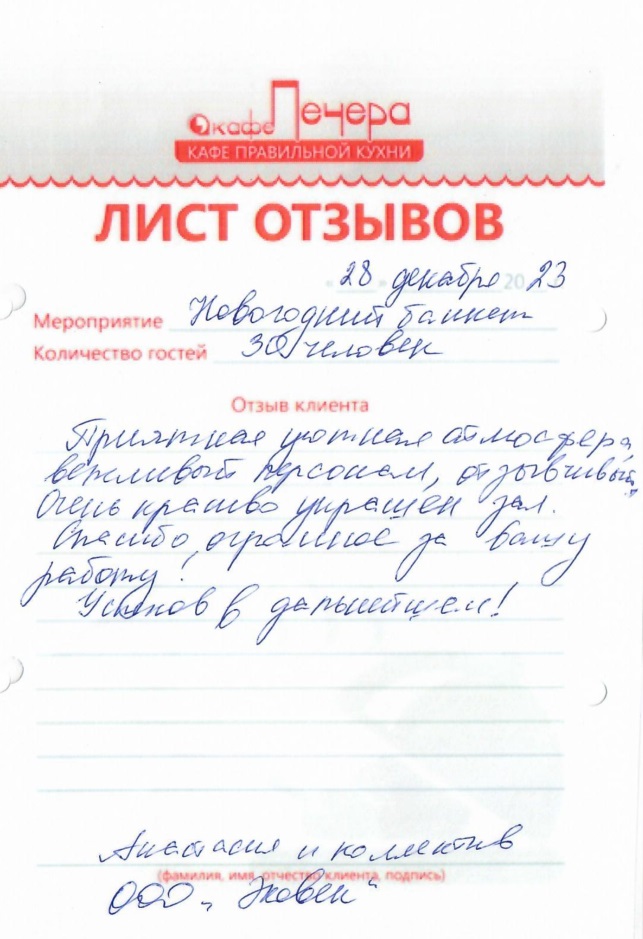 кафе Печера
КАФЕ ПРАВИЛЬНОЙ КУХНИ
ЛИСТ ОТЗЫВОВ
"28" декабря 2023
Мероприятие Новогодний банкет
Количество гостей 30 человек
Отзыв клиента
Приятная уютная атмосфера,
вежливый персонал, отзывчивый.
Очень красиво украшен зал.
Спасибо огромное за вашу
работу!
Успехов в дальнейшем!
Анастасия и коллектив
(фамилия, имя, отчество клиента, подпись)
ООО „Эковек"